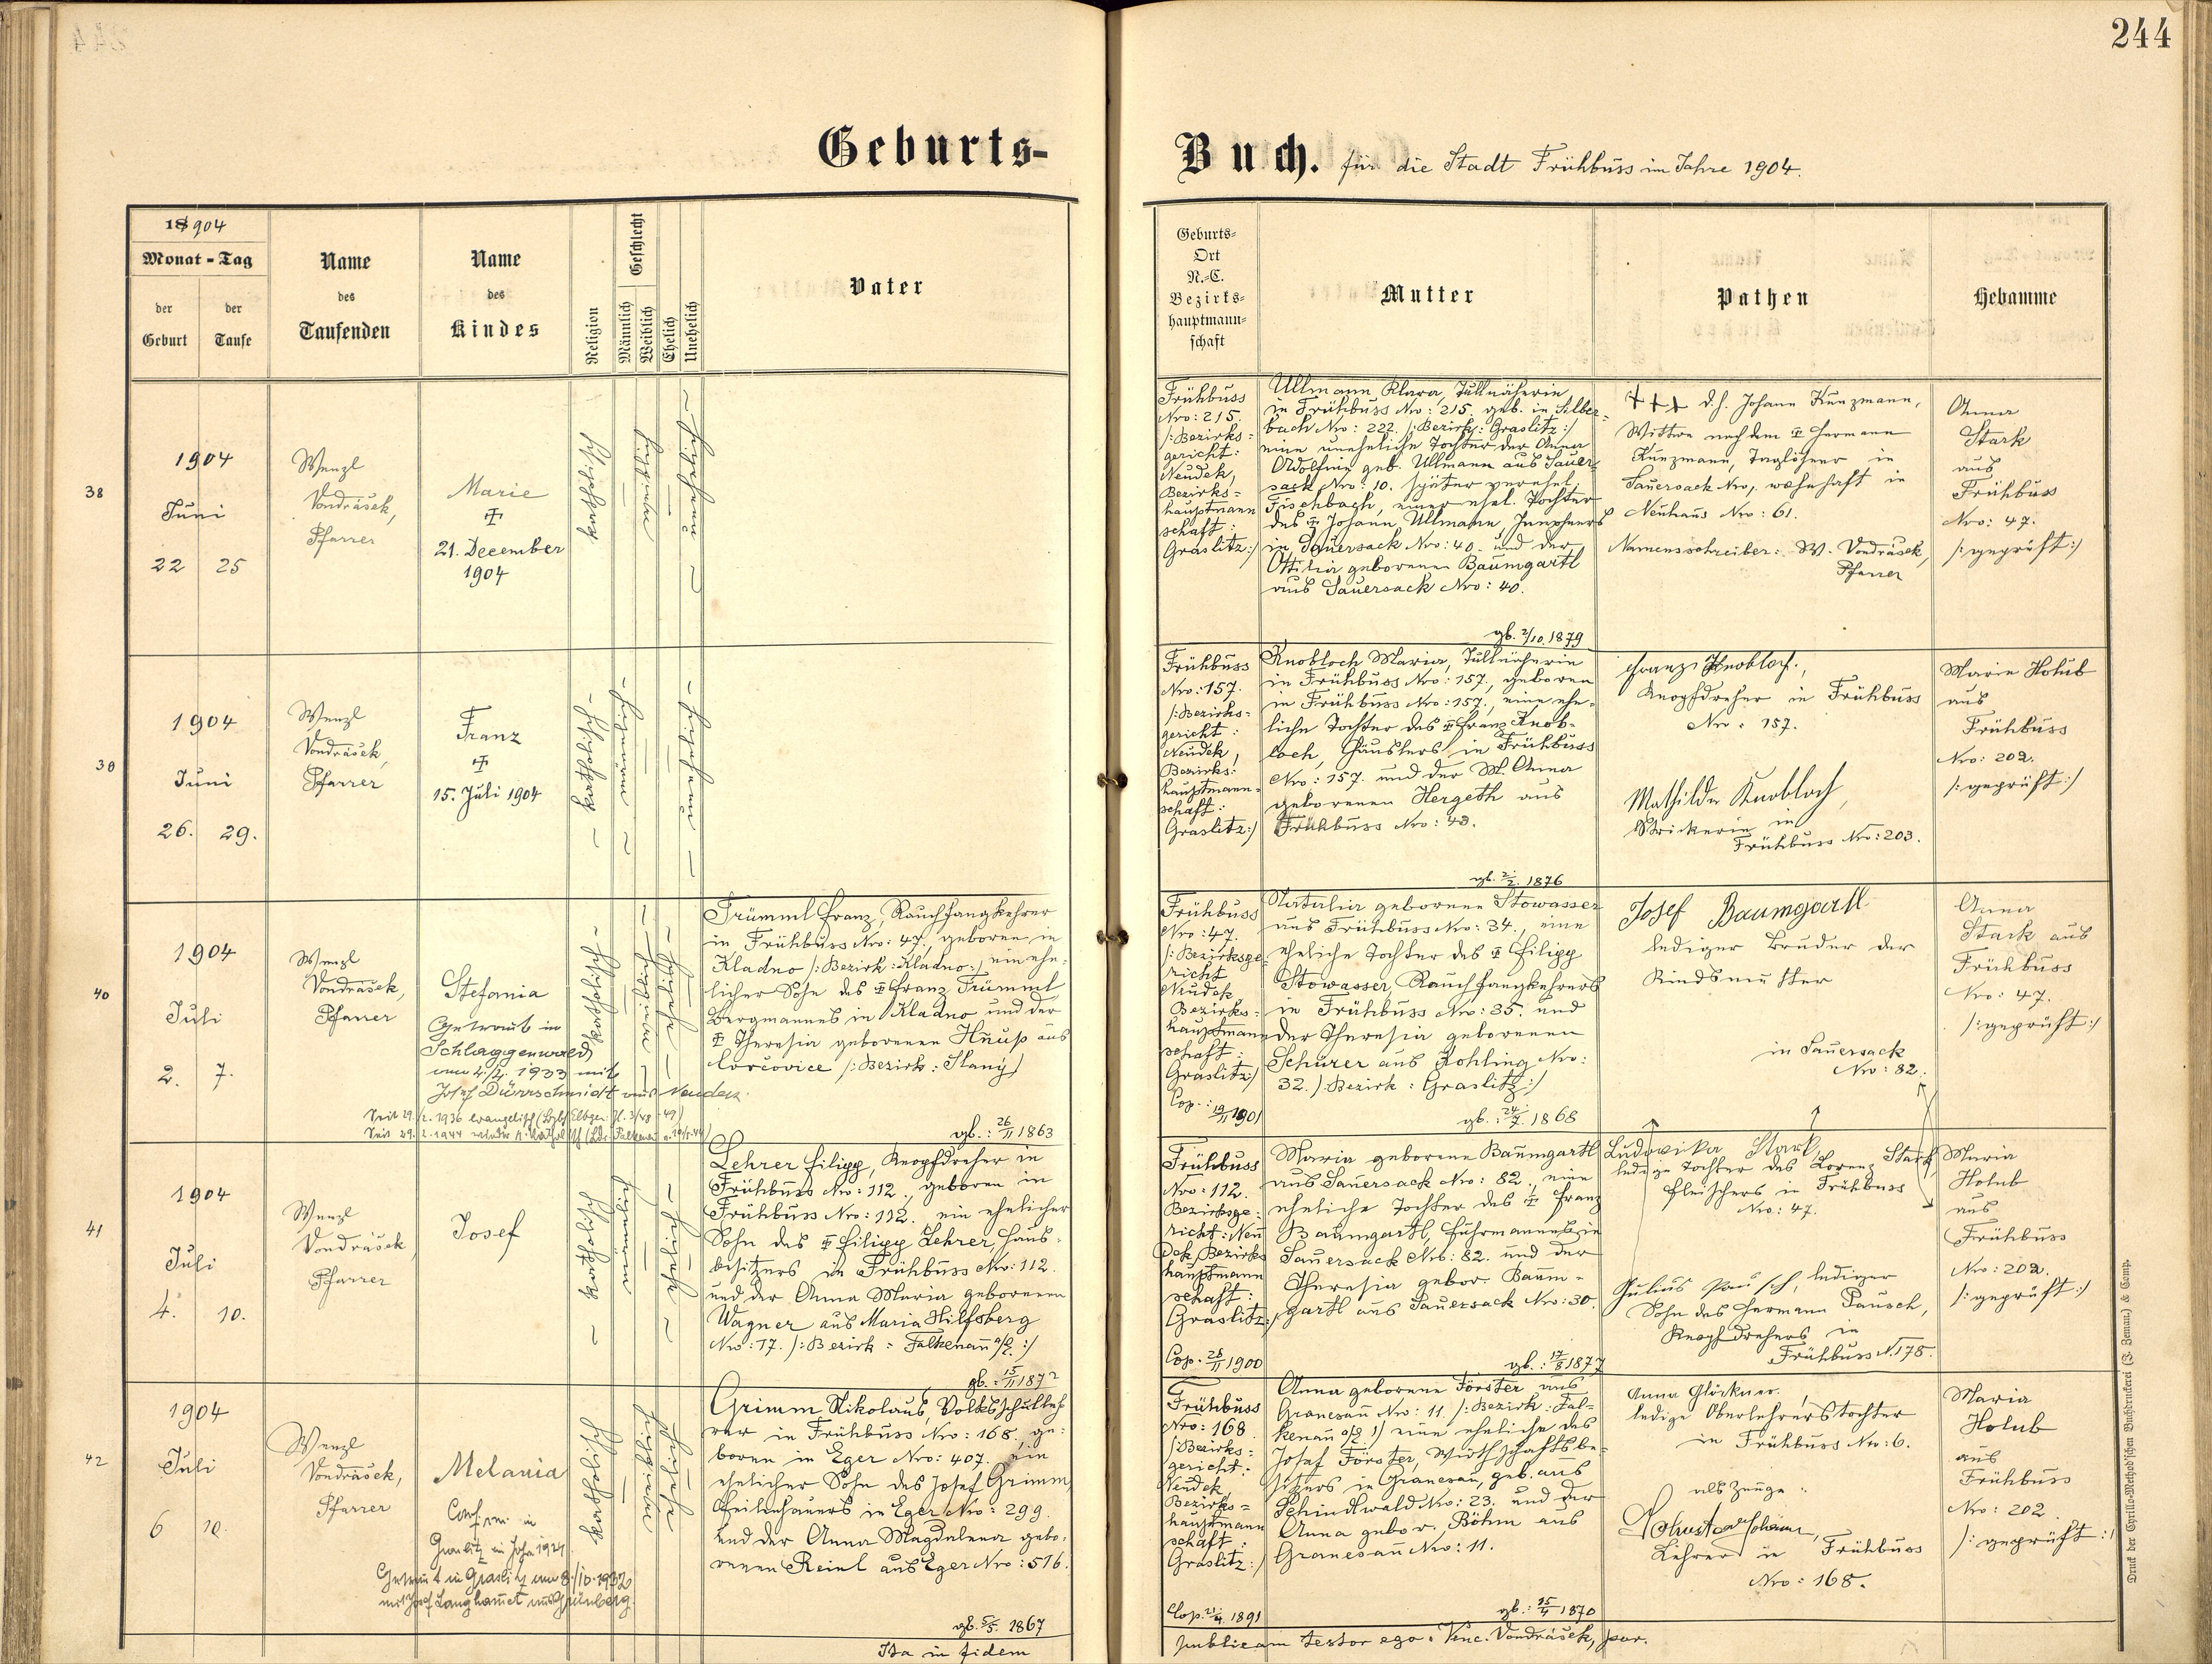 244
Geburts-
Buch. für die Stadt Frühbuss im Jahre 1904.
18904
Monat - Tag
der Geburt
der Taufe
Name des Taufenden
Name des Kindes
Religion
Geschlecht
Männlich
Weiblich
Ehelich
Unehelich
Vater
Geburts-
Ort
N.-C.
Bezirks-
hauptmann-
schaft
Mutter
Pathen
Hebamme
38
1904
Juni
22 25
Wenzl
Vondrášek,
Pfarrer
Marie
21. December
1904
Frühbuss
Nro: 215.
/: Bezirks-
gericht:
Neudek,
Bezirks-
hauptmann
schaft:
Graslitz:/
Ullmann Klara, Tüllnäherin
in Frühbuss Nro: 215. geb. in Silber-
bach Nro: 222. /:Bezirk: Graslitz:/
eine uneheliche Tochter der Anna
Adolfine geb. Ullmann aus Sauer-
sack Nro: 10. später verehel.
Fischbach, einer ehel. Tochter
des Johann Ullmann,
in Sauersack Nro: 40. und der
Ottilia geborenen Baumgartl
aus Sauersack Nro: 40.
gb. 2/10. 1879
+++ d.h. Johann Kunzmann,
Wittwe nach dem Hermann
Kunzmann, Taglöhner in
Sauersack Nro, wohnhaft in
Neuhaus Nro: 61.
Namensschreiber: W. Vondrášek,
Pfarrer
Anna
Stark
aus
Frühbuss
Nro: 47.
/: geprüft :/
39
1904
Juni
26. 29.
Wenzl
Vondrášek,
Pfarrer
Franz
15. Juli 1904
Frühbuss
Nro.: 157.
/: Bezirks-
gericht:
Neudek,
Bezirks-
hauptmann-
schaft:
Graslitz:/
Knobloch Maria, Tüllnäherin
in Frühbuss Nro: 157., geboren
in Frühbuss Nro: 157., eine ehe-
liche Tochter des Franz Knob-
loch, Häuslers in Frühbuss
Nro: 157. und der M. Anna
geborenen Hergeth aus
Frühbuss Nro: 43.
gb. 2/2. 1876
Franz Knobloch,
Knopfdreher in Frühbuss
Nro: 157.
Mathilde Knobloch,
Stickerin in
Frühbuss Nro: 203.
Marie Holub
aus
Frühbuss
Nro: 202.
/: geprüft :/
40
1904
Juli
2. 7.
Wenzl
Vondrášek,
Pfarrer
Stefania
Getraut in
Schlaggenwald
am 4./2. 1933 mit
Josef Dürrschmidt aus Neudek
Trümml Franz, Rauchfangkehrer
in Frühbuss Nro: 47., geboren in
Kladno /: Bezirk: Kladno:/ ein ehe-
licher Sohn des Franz Trümml
Bergmannes in Kladno und der
Theresia geborenen Hnuß aus
/: Bezirk: Slaný/
gb.: 26/11 1863
Frühbuss
Nro: 47.
/: Bezirksge-
richt
Neudek
Bezirks-
hauptmann
schaft:
Graslitz:/
Cop.: 19/11 1901
Natalia geborene Stowasser
aus Frühbuss Nro: 34., eine
eheliche Tochter des Filipp
Stowasser, Rauchfangkehrers
in Frühbuss Nro: 35. und
der Theresia geborenen
Schürer aus Rohling Nro:
32. /:Bezirk: Graslitz:/
gb.: 24/7. 1868
Josef Baumgartl
lediger Bruder der
Kindsmutter
in Sauersack
Nro: 82.
Anna
Stark aus
Frühbuss
Nro: 47.
/: geprüft :/
41
1904
Juli
4. 10.
Wenzl
Vondrášek
Pfarrer
Josef
Lehrer Filipp, Knopfdreher in
Frühbuss Nro: 112., geboren in
Frühbuss Nro: 112. ein ehelicher
Sohn des Filipp Lehrer, Haus-
besitzers in Frühbuss Nro: 112.
und der Anna Maria geborenen
Wagner aus Maria Hilfsberg
Nro: 17. /: Bezirk: Falkenau a/E. :/
gb.: 15/11 1872
Frühbuss
Nro: 112.
Bezirksge-
richt: Neu
dek, Bezirks
hauptmann
schaft:
Graslitz:/
Cop. 26/11 1900
Maria geborene Baumgartl
aus Sauersack Nro: 82., eine
eheliche Tochter des Franz
Baumgartl, Fuhrmannes in
Sauersack Nro: 82. und der
Theresia gebor. Baum-
gartl aus Sauersack Nro: 30.
gb.: 17/8 1877
Ludovika Stark,
ledige Tochter des Lorenz Stark
Fleischers in Frühbuss
Nro: 47.
Julius Pausch, lediger
Sohn des Hermann Pausch,
Knopfdrehers in
Frühbuss N. 178.
Maria
Holub
aus
Frühbuss
Nro: 202.
/: geprüft :/
42
1904
Juli
6 10.
Wenzl
Vondrášek,
Pfarrer
Melania
Getraut in Graslitz am 8./10. 1932
mit Josef Langhamet aus Grünberg.
Grimm Nikolaus, Volksschulleh-
rer in Frühbuss Nro: 168. ge-
boren in Eger Nro: 407. ein
ehelicher Sohn des Josef Grimm,
Feilenhauers in Eger Nro: 299.
und der Anna Magdalena gebo-
renen Reinl aus Eger Nro: 516.
gb. 5/5. 1867
Frühbuss
Nro: 168
/: Bezirks-
gericht:
Neudek
Bezirks-
hauptmann
schaft:
Graslitz:/
Cop. 21/4. 1891
Anna geborene Förster aus
Granesau Nro: 11. /: Bezirk: Fal-
kenau a/E :/ eine eheliche des
Josef Förster, Wirthschaftsbe-
sitzers in Granesau, geb. aus
Schindlwald Nro: 23. und der
Anna gebor. Böhm aus
Granesau Nro: 11.
gb.: 25/4 1870
Anna Glöckner,
ledige Oberlehrerstochter
in Frühbuss Nro: 6.
als Zeuge:
Lehrer in Frühbuss
Nro: 168.
Maria
Holub
aus
Frühbuss
Nro: 202
/: geprüft :/
Ita in fidem
publicam testor ego: Venc. Vondrášek, par.
Druck der Cyrillo-Method'schen Buchdruckerei (J. Zeman.) & Comp.